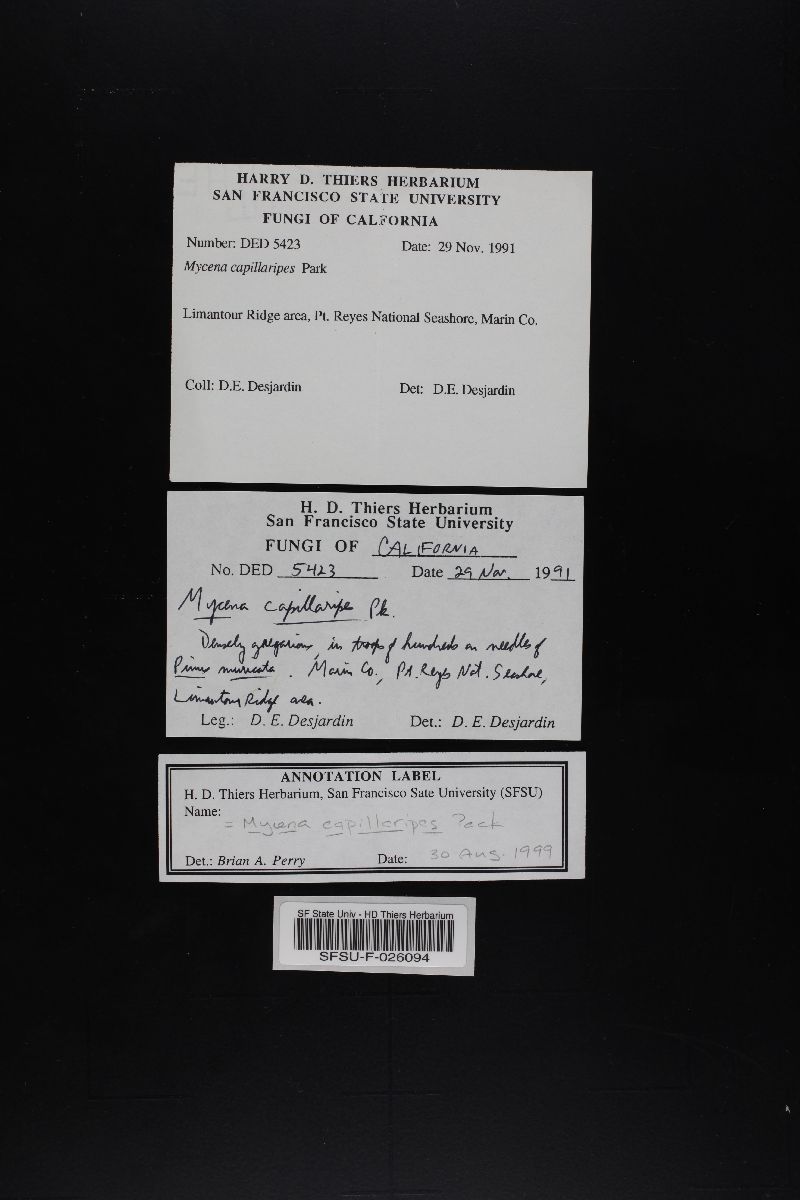 HARRY D. THIERS HERBARIUM
SAN FRANCISCO STATE UNIVERSITY
FUNGI OF CALFORNIA
Number: DED 5423 Date: 29 Nov. 1991
Mycena capillaripes Park
Limantour Ridge area, Pt. Reyes National Seashore, Marin Co.
Coll: D.E. Desjardin Det: D.E. Desjardin
H. D. Thiers Herbarium
San Francisco State University
FUNGI OF CALIFORNIA
No. DED 5423 Date 29 Nov. 1991
Mycena capillaripe Pk.
Densely gregarious, in troops of hundreds on needles of
Pinus muricata. Marin Co., Pt. Reyes Nat. Seashore,
Limantour Ridge area.
Leg.: D. E. Desjardin Det.: D. E. Desjardin
ANNOTATION LABEL
H. D. Thiers Herbarium, San Francisco Sate University (SFSU)
Name:
= Mycena capillaripes Peck
Det.: Brian A. Perry Date: 30 Aug. 1999
SF State Univ - HD Thiers Herbarium
SFSU-F-026094